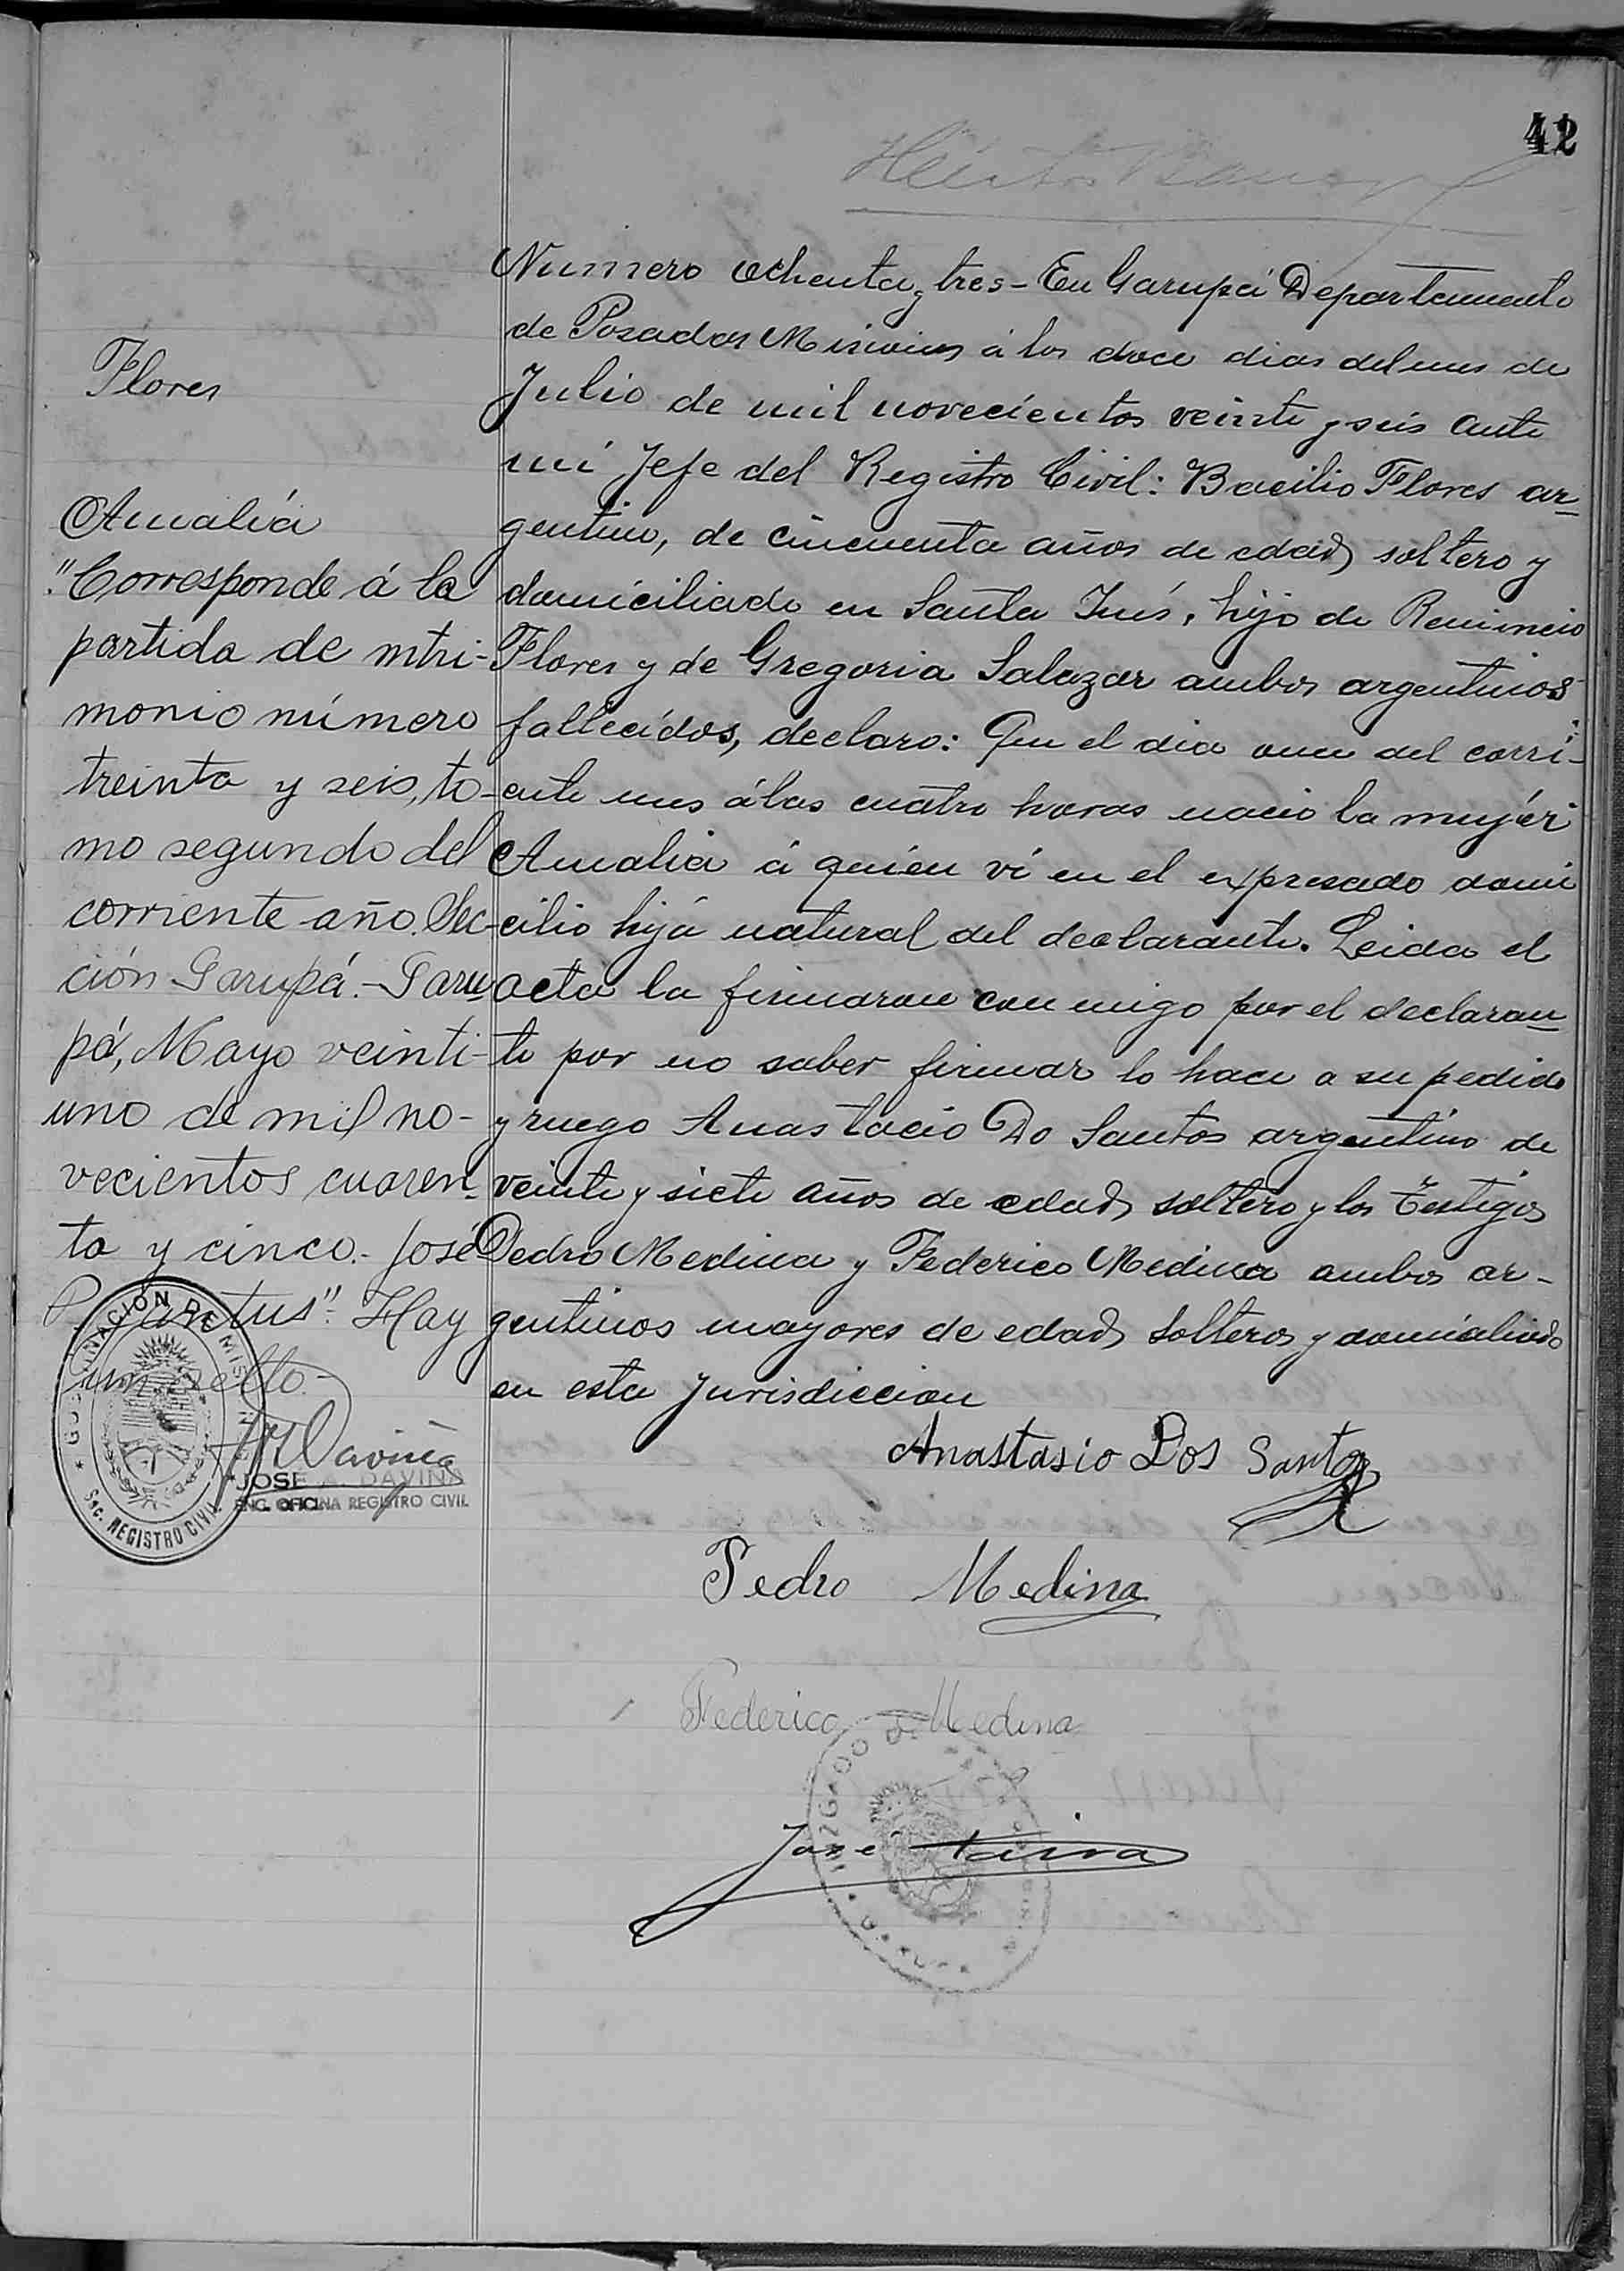 42
Numero ochenta y tres - En Garupá Departamento
de Posadas Misiones á los doce dias del mes de
Julio de mil novecientos veinte y seis ante
mi Jefe del Registro Civil: Bacilio Flores ar_
gentino, de cincuenta años de edad soltero y
domiciliado en Santa Inés, hijo de
Flores y de Gregoria Salazar ambos argentinos
fallecidos, declaro: Que el dia once del corri_
ente mes á las cuatro horas nacio la mujér
Amalia á quien ví en el expresado domi
cilio hijá natural del declarante. Leida el
acta la firmaron conmigo por el declaran_
te por no saber firmar lo hace a su pedido
y ruego Anastacio Do Santos argentino de
veinte y siete años de edad soltero y los Testigos
Pedro Medina y Federico Medina ambos ar-
gentinos mayores de edad solteros y domiciliado
en esta Jurisdiccion
Anastasio Dos Santos
Pedro Medina
Federico Medina
José
Flores
Amalia
"Corresponde á la
partida de mtri-
monio número
treinta y seis, to-
mo segundo del
corriente año. Sec-
ción Garupá.- Garu_
pá, Mayo veinti-
uno de mil no-
vecientos cuaren-
ta y cinco.- José
Hay
un sello.-
GOBERNACIÓN DE MISIONES
SEC. REGISTRO CIVIL
JOSE A. DAVIÑA
ENC. OFICINA REGISTRO CIVIL
JUZGADO DE
GARUPA